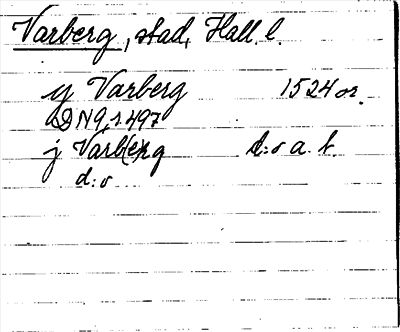 Varberg, stad, Hall. l.
y Varberg 1524 or.
DN 9, s 497
j Varb(er)g d:o a. k.
d:o